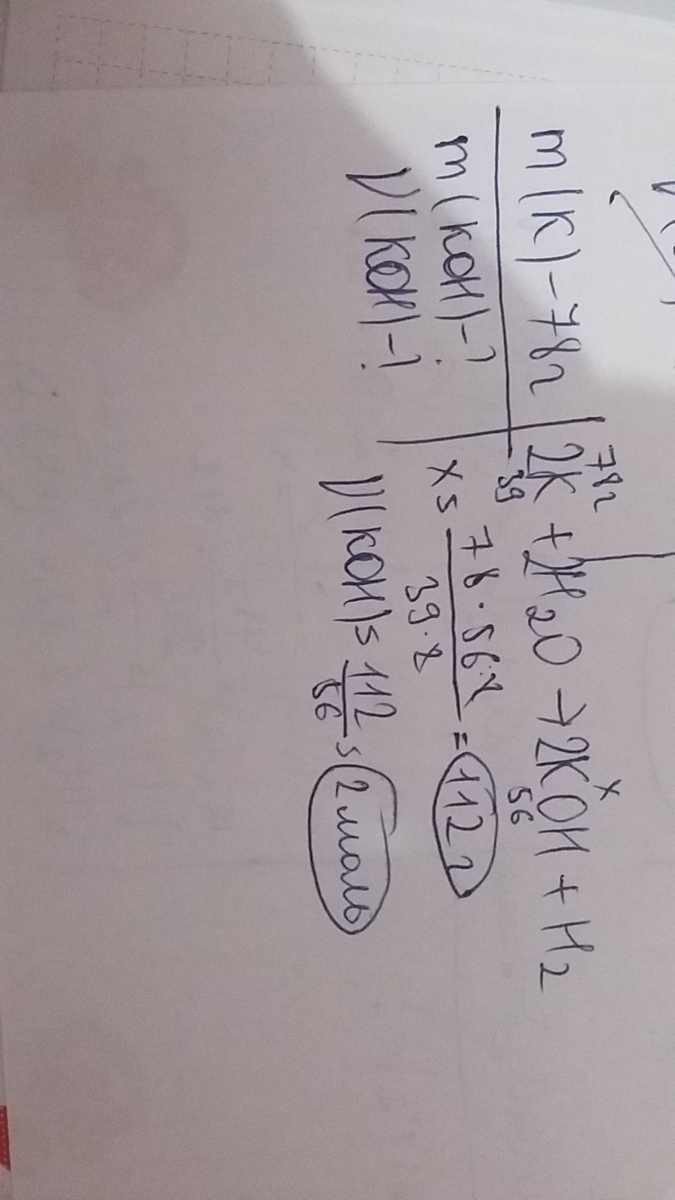 m(K) - 78г
m(KOH) - ?
ν(KOH) - ?
78г x
2K + 2H₂O → 2KOH + H₂
39 56
x = 78·56·2 / 39·2 = 112 г
ν(KOH) = 112 / 56 = 2 моль